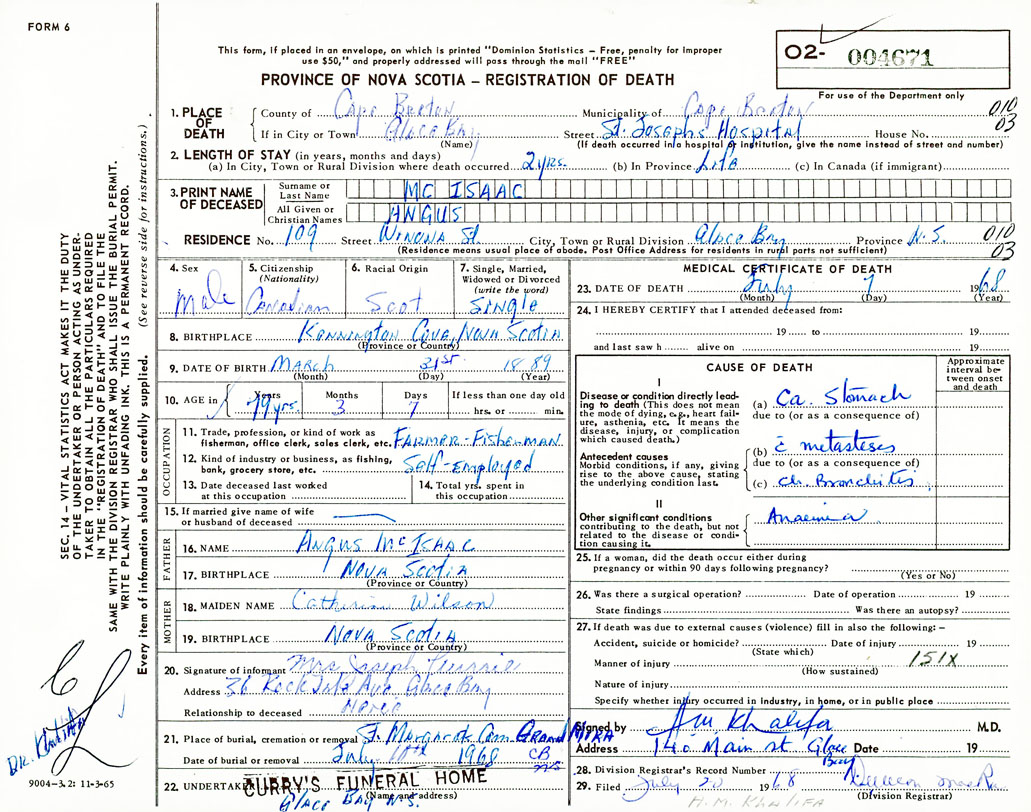 FORM 6
This form, if placed in an envelope, on which is printed "Dominion Statistics – Free, penalty for improper
use $50," and properly addressed will pass through the mail "FREE"
PROVINCE OF NOVA SCOTIA – REGISTRATION OF DEATH
O2- 004671
For use of the Department only
1. PLACE OF DEATH County of Cape Breton Municipality of Cape Breton 010
If in City or Town Glace Bay Street St. Josephs Hospital House No. 03
(Name) (If death occurred in a hospital or institution, give the name instead of street and number)
2. LENGTH OF STAY (in years, months and days)
(a) In City, Town or Rural Division where death occurred 2 yrs. (b) In Province Life (c) In Canada (if immigrant)
3. PRINT NAME OF DECEASED Surname or Last Name MC ISAAC
All Given or Christian Names ANGUS
RESIDENCE No. 109 Street Winona St. City, Town or Rural Division Glace Bay Province N.S. 010
(Residence means usual place of abode. Post Office Address for residents in rural parts not sufficient) 03
4. Sex Male
5. Citizenship (Nationality) Canadian
6. Racial Origin Scot
7. Single, Married, Widowed or Divorced (write the word) Single
8. BIRTHPLACE Kennington Cove, Nova Scotia
(Province or Country)
9. DATE OF BIRTH March 31st. 1889
(Month) (Day) (Year)
10. AGE in Years Months Days If less than one day old
79 yrs. 3 7 hrs. or min.
OCCUPATION
11. Trade, profession, or kind of work as fisherman, office clerk, sales clerk, etc. Farmer-Fisherman
12. Kind of industry or business, as fishing, bank, grocery store, etc. Self-Employed
13. Date deceased last worked at this occupation
14. Total yrs. spent in this occupation
15. If married give name of wife or husband of deceased
FATHER
16. NAME Angus McIsaac
17. BIRTHPLACE Nova Scotia
(Province or Country)
MOTHER
18. MAIDEN NAME Catherine Wilson
19. BIRTHPLACE Nova Scotia
(Province or Country)
20. Signature of informant Mrs Joseph
Address 36 Ave Glace Bay
Relationship to deceased
21. Place of burial, cremation or removal St. Margaret Cem. Grand Mira
Date of burial or removal July 10th 1968 CB NS
22. UNDERTAKER CURRY'S FUNERAL HOME
(Name and address)
Glace Bay N.S.
MEDICAL CERTIFICATE OF DEATH
23. DATE OF DEATH July 7 1968
(Month) (Day) (Year)
24. I HEREBY CERTIFY that I attended deceased from:
19 to 19
and last saw h alive on 19
CAUSE OF DEATH
Approximate interval between onset and death
I
Disease or condition directly leading to death (This does not mean the mode of dying, e.g., heart failure, asthenia, etc. It means the disease, injury, or complication which caused death.)
(a) Ca. Stomach
due to (or as a consequence of)
Antecedent causes
Morbid conditions, if any, giving rise to the above cause, stating the underlying condition last.
(b) c̄ metasteses
due to (or as a consequence of)
(c) Ch. Bronchitis
II
Other significant conditions contributing to the death, but not related to the disease or condition causing it.
Anaemia
25. If a woman, did the death occur either during
pregnancy or within 90 days following pregnancy?
(Yes or No)
26. Was there a surgical operation? Date of operation 19
State findings Was there an autopsy?
27. If death was due to external causes (violence) fill in also the following: –
Accident, suicide or homicide? Date of injury 19
(State which)
Manner of injury 151X
(How sustained)
Nature of injury
Specify whether injury occurred in industry, in home, or in public place
Signed by HM Khalifa M.D.
Address 140 Main st Glace Bay Date 19
28. Division Registrar's Record Number
29. Filed July 20 1968
(Division Registrar)
H.M. KHALIFA
SEC. 14 – VITAL STATISTICS ACT MAKES IT THE DUTY
OF THE UNDERTAKER OR PERSON ACTING AS UNDER-
TAKER TO OBTAIN ALL THE PARTICULARS REQUIRED
IN THE "REGISTRATION OF DEATH" AND TO FILE THE
SAME WITH THE DIVISION REGISTRAR WHO SHALL ISSUE THE BURIAL PERMIT.
WRITE PLAINLY WITH UNFADING INK. THIS IS A PERMANENT RECORD.
Every item of information should be carefully supplied. (See reverse side for instructions.)
DR. Khalifa
9004-3.2: 11-3-65